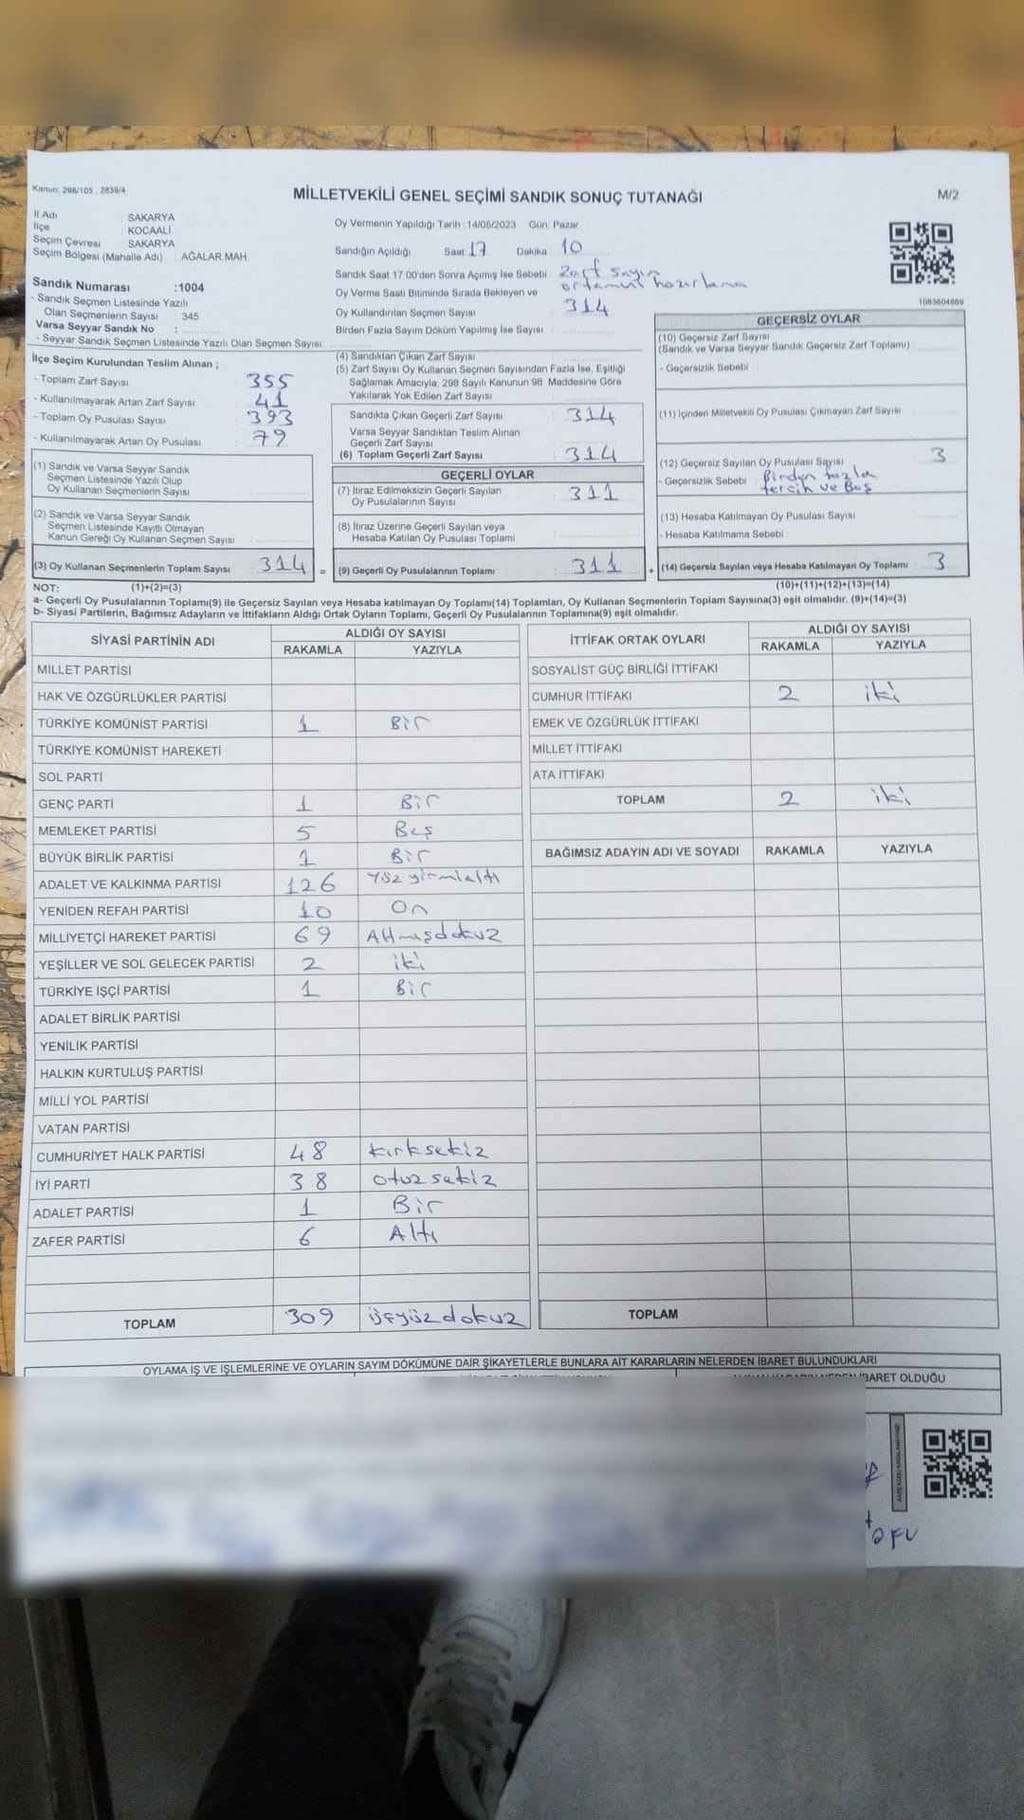 Kanun: 298/105 , 2839/4
MİLLETVEKİLİ GENEL SEÇİMİ SANDIK SONUÇ TUTANAĞI
M/2
İl Adı : SAKARYA
İlçe : KOCAALİ
Seçim Çevresi : SAKARYA
Seçim Bölgesi (Mahalle Adı) : AĞALAR MAH.
Sandık Numarası :1004
- Sandık Seçmen Listesinde Yazılı
Olan Seçmenlerin Sayısı : 345
Varsa Seyyar Sandık No :
- Seyyar Sandık Seçmen Listesinde Yazılı Olan Seçmen Sayısı:
Oy Vermenin Yapıldığı Tarih :14/05/2023 Gün: Pazar
Sandığın Açıldığı Saat 17 Dakika 10
Sandık Saat 17:00'den Sonra Açımış İse Sebebi : Zarf sayım
ortamını hazırlama
Oy Verme Saati Bitiminde Sırada Bekleyen ve
Oy Kullandırılan Seçmen Sayısı 314
Birden Fazla Sayım Döküm Yapılmış İse Sayısı
İlçe Seçim Kurulundan Teslim Alınan ;
- Toplam Zarf Sayısı 355
- Kullanılmayarak Artan Zarf Sayısı 41
- Toplam Oy Pusulası Sayısı 393
- Kullanılmayarak Artan Oy Pusulası 79
(1) Sandık ve Varsa Seyyar Sandık
Seçmen Listesinde Yazılı Olup
Oy Kullanan Seçmenlerin Sayısı
(2) Sandık ve Varsa Seyyar Sandık
Seçmen Listesinde Kayıtlı Olmayan
Kanun Gereği Oy Kullanan Seçmen Sayısı
(3) Oy Kullanan Seçmenlerin Toplam Sayısı 314 =
(4) Sandıktan Çıkan Zarf Sayısı
(5) Zarf Sayısı Oy Kullanan Seçmen Sayısından Fazla İse, Eşitliği
Sağlamak Amacıyla, 298 Sayılı Kanunun 98. Maddesine Göre
Yakılarak Yok Edilen Zarf Sayısı
Sandıkta Çıkan Geçerli Zarf Sayısı 314
Varsa Seyyar Sandıktan Teslim Alınan
Geçerli Zarf Sayısı
(6) Toplam Geçerli Zarf Sayısı 314
GEÇERLİ OYLAR
(7) İtiraz Edilmeksizin Geçerli Sayılan 311
Oy Pusulalarının Sayısı
(8) İtiraz Üzerine Geçerli Sayılan veya
Hesaba Katılan Oy Pusulası Toplamı
(9) Geçerli Oy Pusulalarının Toplamı 311 +
1083604669
GEÇERSİZ OYLAR
(10) Geçersiz Zarf Sayısı
(Sandık ve Varsa Seyyar Sandık Geçersiz Zarf Toplamı)
- Geçersizlik Sebebi
(11) İçinden Milletvekili Oy Pusulası Çıkmayan Zarf Sayısı
(12) Geçersiz Sayılan Oy Pusulası Sayısı 3
- Geçersizlik Sebebi Birden fazla
tercih ve Boş
(13) Hesaba Katılmayan Oy Pusulası Sayısı
- Hesaba Katılmama Sebebi
(14) Geçersiz Sayılan veya Hesaba Katılmayan Oy Toplamı 3
NOT: (1)+(2)=(3) (10)+(11)+(12)+(13)=(14)
a- Geçerli Oy Pusulalarının Toplamı(9) ile Geçersiz Sayılan veya Hesaba katılmayan Oy Toplamı(14) Toplamları, Oy Kullanan Seçmenlerin Toplam Sayısına(3) eşit olmalıdır. (9)+(14)=(3)
b- Siyasi Partilerin, Bağımsız Adayların ve İttifakların Aldığı Ortak Oyların Toplamı, Geçerli Oy Pusulalarının Toplamına(9) eşit olmalıdır.
SİYASİ PARTİNİN ADI ALDIĞI OY SAYISI
RAKAMLA YAZIYLA
MİLLET PARTİSİ
HAK VE ÖZGÜRLÜKLER PARTİSİ
TÜRKİYE KOMÜNİST PARTİSİ 1 Bir
TÜRKİYE KOMÜNİST HAREKETİ
SOL PARTİ
GENÇ PARTİ 1 Bir
MEMLEKET PARTİSİ 5 Beş
BÜYÜK BİRLİK PARTİSİ 1 Bir
ADALET VE KALKINMA PARTİSİ 126 Yüzyirmialtı
YENİDEN REFAH PARTİSİ 10 On
MİLLİYETÇİ HAREKET PARTİSİ 69 Altmışdokuz
YEŞİLLER VE SOL GELECEK PARTİSİ 2 iki
TÜRKİYE İŞÇİ PARTİSİ 1 Bir
ADALET BİRLİK PARTİSİ
YENİLİK PARTİSİ
HALKIN KURTULUŞ PARTİSİ
MİLLİ YOL PARTİSİ
VATAN PARTİSİ
CUMHURİYET HALK PARTİSİ 48 kırksekiz
İYİ PARTİ 38 otuzsekiz
ADALET PARTİSİ 1 Bir
ZAFER PARTİSİ 6 Altı
TOPLAM 309 üçyüzdokuz
İTTİFAK ORTAK OYLARI ALDIĞI OY SAYISI
RAKAMLA YAZIYLA
SOSYALİST GÜÇ BİRLİĞİ İTTİFAKI
CUMHUR İTTİFAKI 2 iki
EMEK VE ÖZGÜRLÜK İTTİFAKI
MİLLET İTTİFAKI
ATA İTTİFAKI
TOPLAM 2 iki
BAĞIMSIZ ADAYIN ADI VE SOYADI RAKAMLA YAZIYLA
TOPLAM
OYLAMA İŞ VE İŞLEMLERİNE VE OYLARIN SAYIM DÖKÜMÜNE DAİR ŞİKAYETLERLE BUNLARA AİT KARARLARIN NELERDEN İBARET BULUNDUKLARI
OLDUĞU